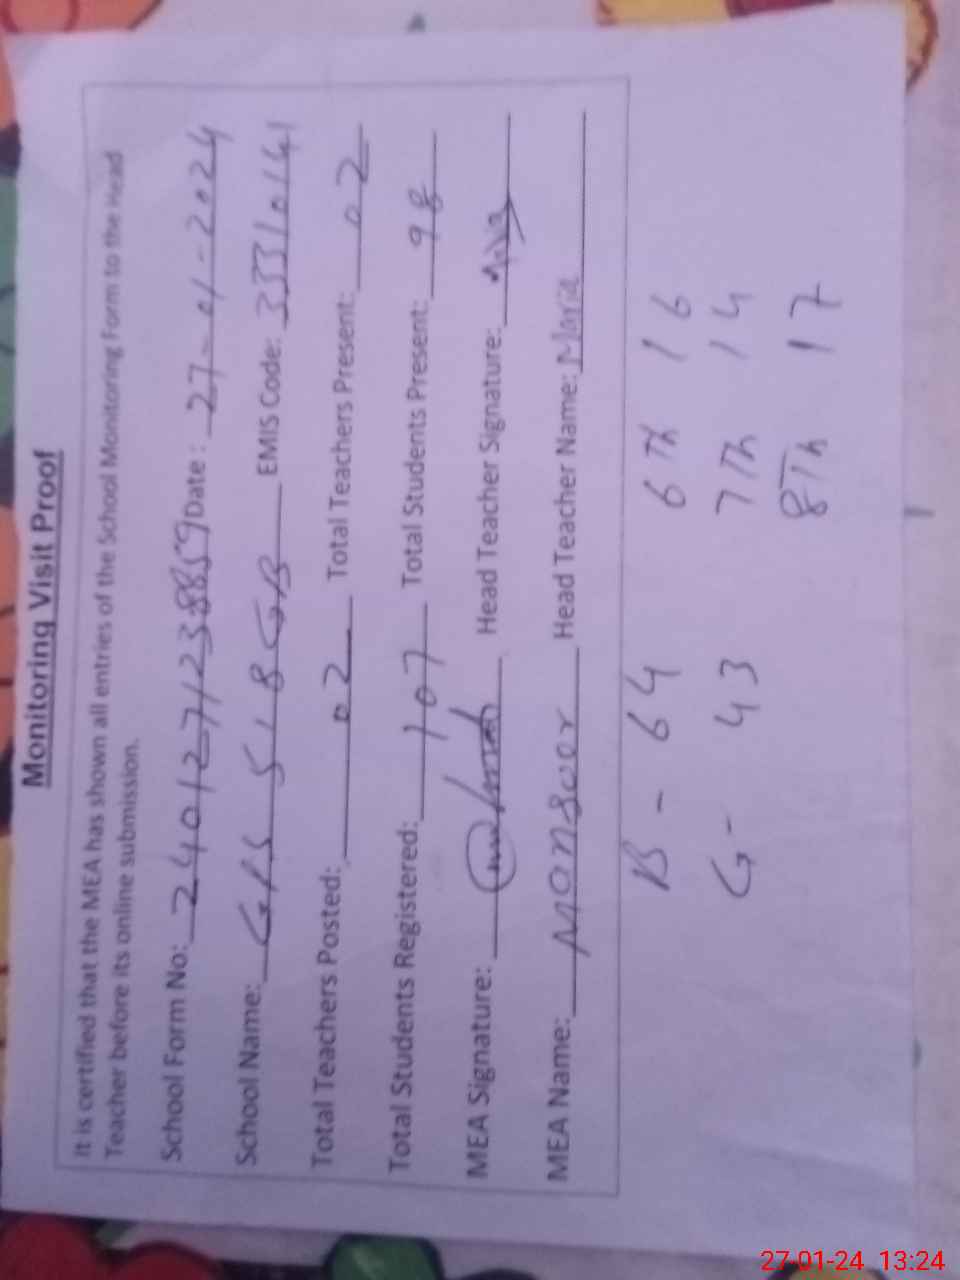 Monitoring Visit Proof
It is certified that the MEA has shown all entries of the School Monitoring Form to the Head
Teacher before its online submission.
School Form No: 2401271238859 Date : 27-01-2024
School Name: G/S 518 GB EMIS Code: 33310141
Total Teachers Posted: 02 Total Teachers Present: 02
Total Students Registered: 107 Total Students Present: 98
MEA Signature: Head Teacher Signature:
MEA Name: Mansoor Head Teacher Name: Maria
B - 64 6Th 16
G - 43 7Th 14
8Th 17
27-01-24 13:24